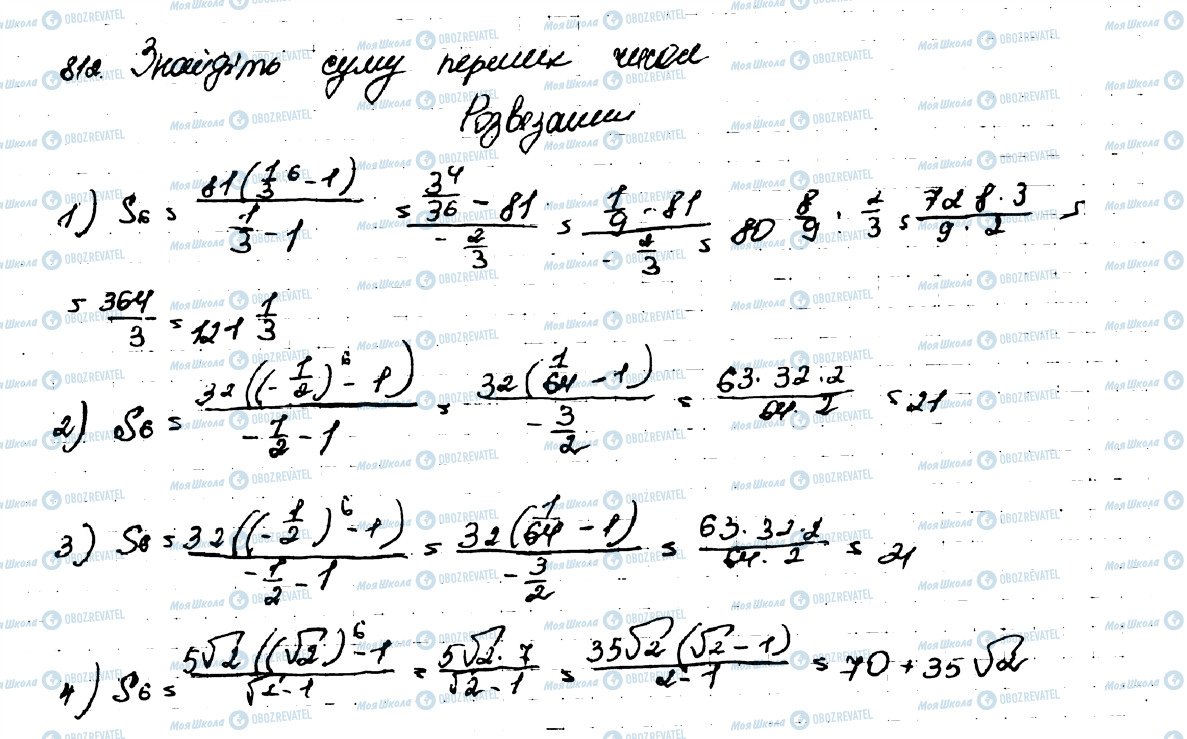 812. Знайдіть суму перших чисел
Розвезання
1) S6 = 81(1/3 6 - 1) / (1/3 - 1) = (3^4/36 - 81) / (-2/3) = (1/9 - 81) / (-2/3) = 80 8/9 : 2/3 = 728·3 / 9·2 =
= 364/3 = 121 1/3
2) S6 = 32((-1/2)^6 - 1) / (-1/2 - 1) = 32(1/64 - 1) / (-3/2) = 63·32·2 / 64·2 = 21
3) S6 = 32((-1/2)^6 - 1) / (-1/2 - 1) = 32(1/64 - 1) / (-3/2) = 63·32·2 / 64·2 = 21
4) S6 = 5√2((√2)^6 - 1 / (√2 - 1) = 5√2·7 / (√2 - 1) = 35√2(√2 - 1) / (2 - 1) = 70 + 35√2